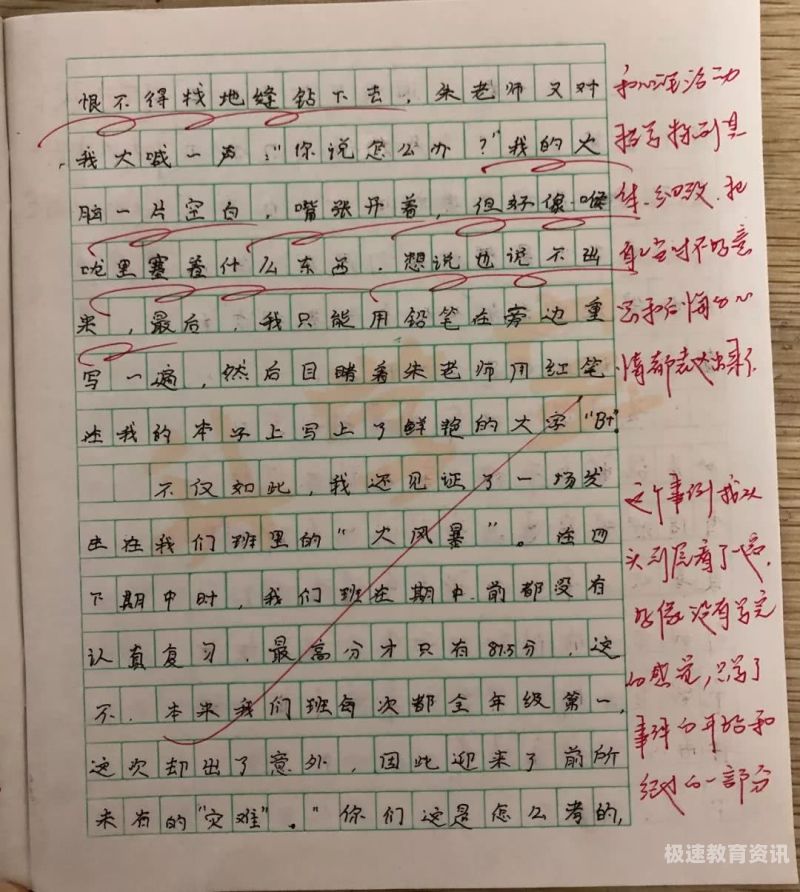 恨不得找地缝钻下去，朱老师又对
我大喊一声：“你说怎么办？”我的大
脑一片空白，嘴张开着，但好像喉
咙里塞着什么东西，想说也说不出
来，最后，我只能用铅笔在旁边重
写一遍，然后目睹着朱老师用红笔
在我的本子上写上了鲜艳的大字“B+”。
不仅如此，我还见证了一场发
生在我们班里的“大风暴”。在四
下期中时，我们班在期中前都没有
认真复习，最高分才只有87.5分，这
不，本来我们班每次都全年级第一，
这次却出了意外，因此迎来了前所
未有的“灾难”。“你们这是怎么考的，
和心理活动
描写
体、细致，把
自己当时不好意
思和后悔的心
情都表达出来了
这个事例我从
头到尾看了一遍，
好像没有写完
的感觉，只写了
事件的开始和
经过的一部分
极速教育资讯